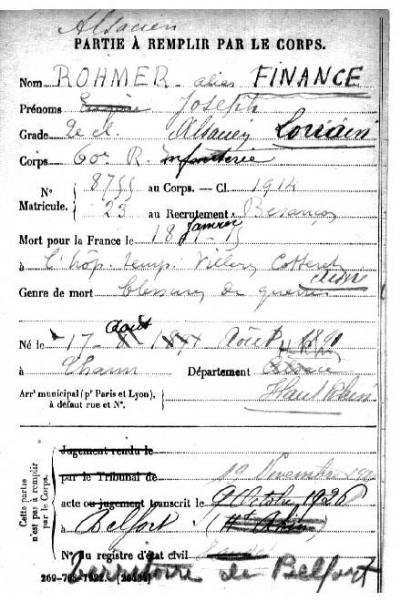 Alsacien
PARTIE À REMPLIR PAR LE CORPS.
Nom ROHMER alias FINANCE
Prénoms Joseph
Grade 2e cl. Alsacien Lorrain
Corps 60e R. infanterie
N° Matricule. { 8755 au Corps. — Cl. 1914
23 au Recrutement Besançon
Mort pour la France le 18 janvier 15
à l'hôp. temp. Villers Cotterets
Aisne
Genre de mort blessures de guerre
Août
Né le 17 Août 1890
à Thann Département Alsace
Haut Rhin
Arr^t municipal (p^r Paris et Lyon),
à défaut rue et N°.
Cette partie n'est pas à remplir par le Corps.
Jugement rendu le
par le Tribunal de 10 Novembre
acte ou jugement transcrit le 9 Octobre 1926
à Belfort (Ht Rhin)
N° du registre d'état civil
Territoire de Belfort